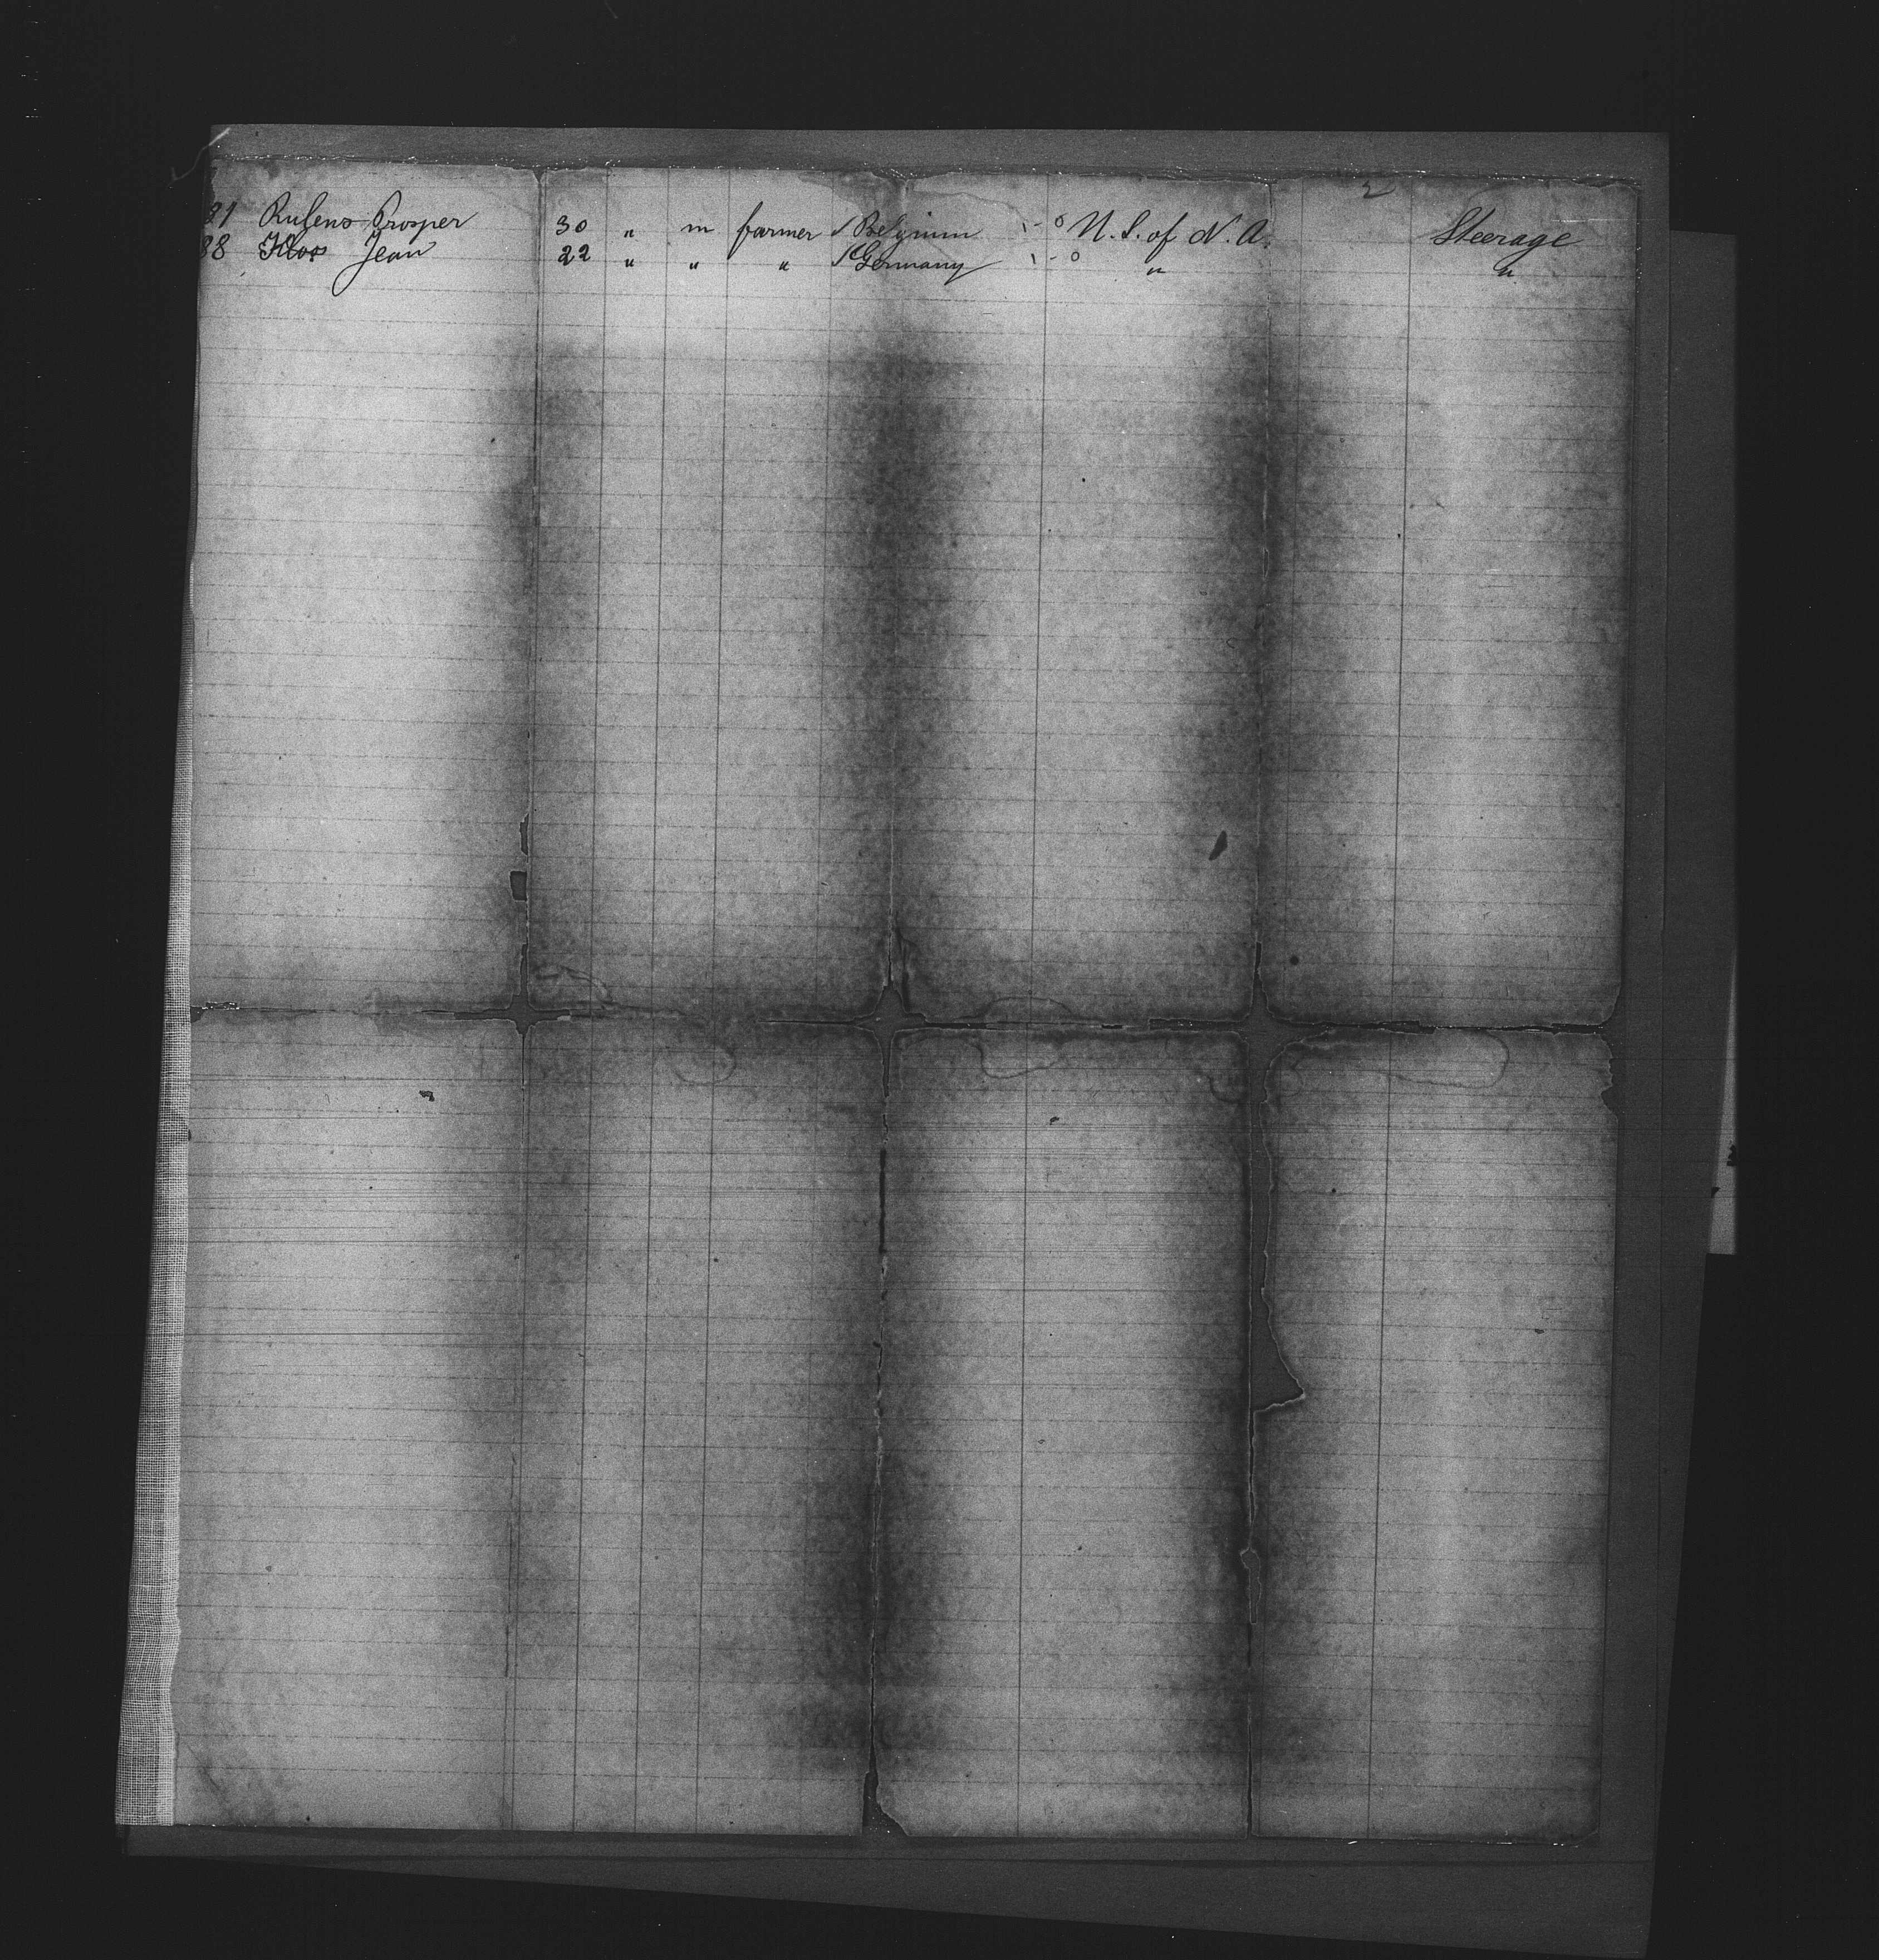 2
Rubens Prosper 30 " m farmer Belgium 1-0 U. S. of N. A. Steerage
88 Kloos Jean 22 " " " Germany 1-0 " "